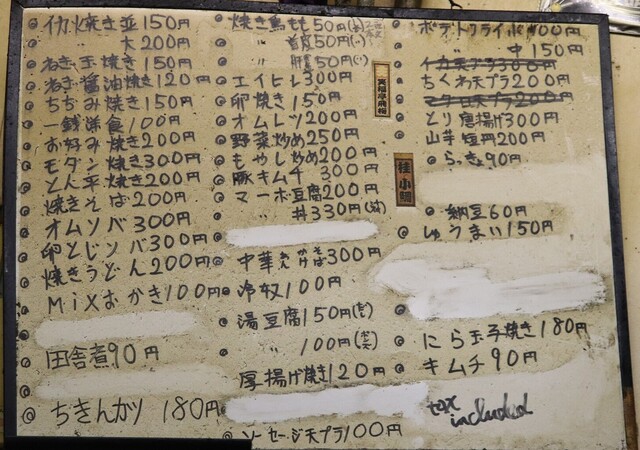 イカ焼き並150円
〃 大200円
ねぎ玉焼き150円
ねぎ醤油焼き120円
ちぢみ焼き150円
一銭洋食100円
お好み焼き200円
モダン焼き300円
とん平焼き200円
焼きそば200円
オムソバ300円
卵とじソバ300円
焼きうどん200円
MiXおかき100円
田舎煮90円
ちきんカツ180円
焼き鳥もも50円
〃 首皮50円(〃)
〃 肝50円(〃)
エイヒレ300円
卵焼き150円
オムレツ200円
野菜炒め250円
もやし炒め200円
豚キムチ300円
マーボ豆腐200円
〃 丼330円
中華そば300円
冷奴100円
湯豆腐150円
〃 100円
厚揚げ焼き120円
ソーセージ天プラ100円
笑福亭
桂小鯛
ポテトフライ小100円
〃 中150円
イカ天プラ300円
ちくわ天プラ200円
マグロ天プラ200円
とり唐揚げ300円
山芋短冊200円
らっきょ90円
納豆60円
しゅうまい150円
にら玉子焼き180円
キムチ90円
tax
included